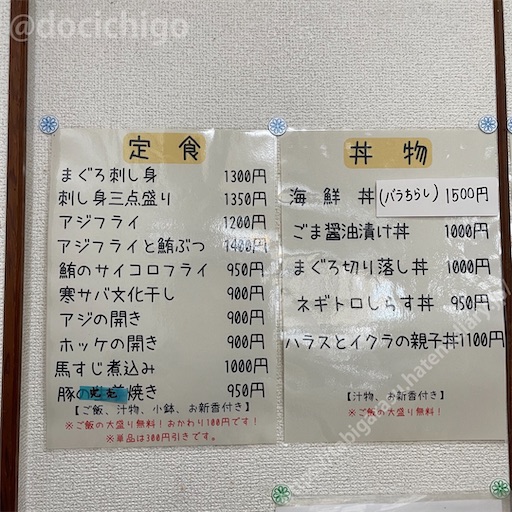 @docichigo
定食
まぐろ刺し身 1300円
刺し身三点盛り 1350円
アジフライ 1200円
アジフライと鮪ぶつ 1400円
鮪のサイコロフライ 950円
寒サバ文化干し 900円
アジの開き 900円
ホッケの開き 900円
馬すじ煮込み 1000円
豚の 焼き 950円
【ご飯、汁物、小鉢、お新香付き】
※ご飯の大盛り無料!おかわり100円です!
※単品は300円引きです。
丼物
海鮮丼(バラちらし) 1500円
ごま醤油漬け丼 1000円
まぐろ切り落し丼 1000円
ネギトロしらす丼 950円
ハラスとイクラの親子丼 1100円
【汁物、お新香付き】
※ご飯の大盛り無料!